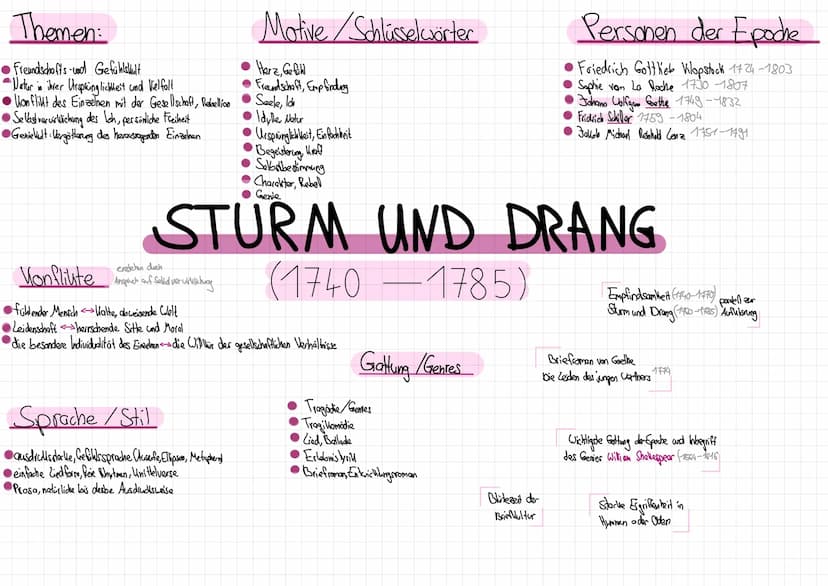 Themen:
Freundschafts- und Gefühlskult
Natur in ihrer Ursprünglichkeit und Vielfalt
Konflikt des Einzelnen mit der Gesellschaft, Rebellion
Selbstverwirklichung des Ich, persönliche Freiheit
Geniekult: Vergötterung des herausragenden Einzelnen
Motive/Schlüsselwörter
Herz, Gefühl
Freundschaft, Empfindung
Seele, Ich
Idylle Natur
Ursprünglichkeit, Einfachheit
Begeisterung, Kraft
Selbstbestimmung
Charakter, Rebell
Genie
Personen der Epoche
Friedrich Gottlieb Klopstock 1724-1803
Sophie von La Roche 1730-1807
Johann Wolfgang Goethe 1749-1832
Fridrich Schiller 1759-1804
Jakob Michael Reinhold Lenz 1751-1791
STURM UND DRANG
(1740 — 1785)
Konflikte
entstehen durch
Anspruch auf Selbstverwirklichung
fühlender Mensch ↔ kalte, abweisende Welt
Leidenschaft ↔ herrschende Sitte und Moral
die besondere Individualität des Einzelnen ↔ die Willkür der gesellschaftlichen Verhältnisse
Empfindsamkeit (1740-1770)
Sturm und Drang
parallel zur
Aufklärung
Gattung/Genres
Tragödie/Genres
Tragikomödie
Lied, Ballade
Erlebnislyrik
Briefroman, Entwicklungsroman
Briefroman von Goethe
Die Leiden des jungen Werthers 1774
Sprache/Stil
ausdrucksstarke, Gefühlssprache (Ausrufe, Ellipsen, Metaphern)
einfache Liedform, freie Rhythmen, Knittelverse
Prosa, natürliche bis derbe Ausdrucksweise
Wichtigste Gattung der Epoche und Inbegriff
des Genies William Shakespear (1564-1616)
Blütezeit der
Briefkultur
Starke Ergriffenheit in
Hymnen oder Oden